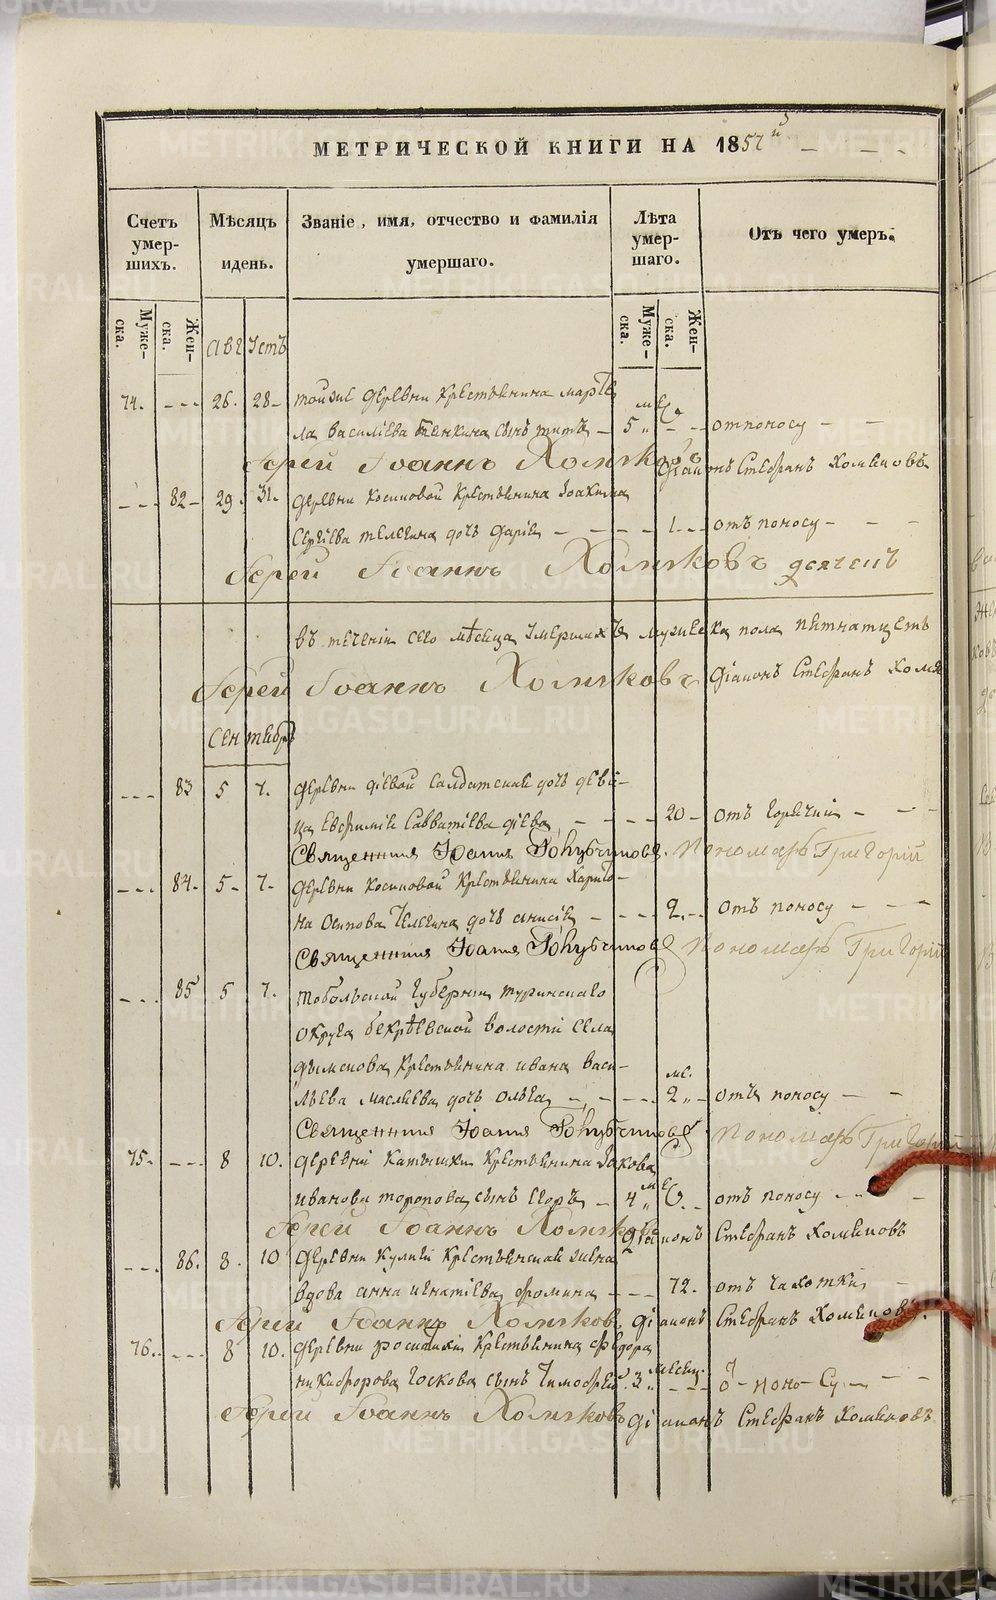 МЕТРИЧЕСКОЙ КНИГИ НА 1857й
Счетъ умер-шихъ.
Мѣсяцъ идень.
Званіе, имя, отчество и фамилія умершаго.
Лѣта умер-шаго.
Отъ чего умеръ.
Муже-ска.
Жен-ска.
Авг устъ
Муже-ска.
Жен-ска.
74. --- 26. 28- тойже деревни крестьянина марте
ла василіева сынъ титъ - 5 ме. -- отпоносу - -
Іерей Іоаннъ Хомяковъ діаконъ Стефанъ Хомяковъ
--- 82- 29. 31. деревни косиковой крестьянина Іоакима
Сергіева телегина дочь дарія - - - - 1. -- отъ поносу - - -
Іерей Іоаннъ Хомяковъ дьячекъ
въ теченіи сего мѣсяца умерших мужеска пола пятнатцеть
Іерей Іоаннъ Хомяковъ діаконъ Стефанъ Хомя
сентябрь
--- 83 5 7. деревни діевой салдатская дочь деви-
ца Евфимія Савватіева діева - - - - 20 - отъ горячки - - -
Священник Іоанн Голубчиков. Пономарь Григорій
--- 84. 5- 7. деревни косиковой крестьянина Харито-
на Осипова телегина дочь анисія - - - - 2. -- отъ поносу - - -
Священник Іоанн Голубчиков Пономарь Григорій
--- 85 5 7. тобольской губерніи туринскаго
округа волости села
крестьянина ивана васи-
льева дочь ольга - - - - - ме. 2 " - отъ поносу - -
Священник Іоанн Голубчиков Пономарь Григорій
75. --- 8 10. деревни Катышки крестьянина Іакова
иванова торопова сынъ Егоръ - 4 ме. -- отъ поносу - -
Іерей Іоаннъ Хомяковъ діаконъ Стефанъ Хомяковъ
--- 86. 8. 10 деревни Кулиги крестьянская жена
вдова анна игнатіева фомина - - - 72. - отъ чахотки -
Іерей Іоаннъ Хомяков. діаконъ Стефанъ Хомяковъ.
76. --- 8 10. деревни крестьянина федора
никифорова госкова сынъ Тимофей. 3 месец. --- от - поно - су - - -
Іерей Іоаннъ Хомяковъ діаконъ Стефанъ Хомяковъ
METRIKI.GASO-URAL.RU